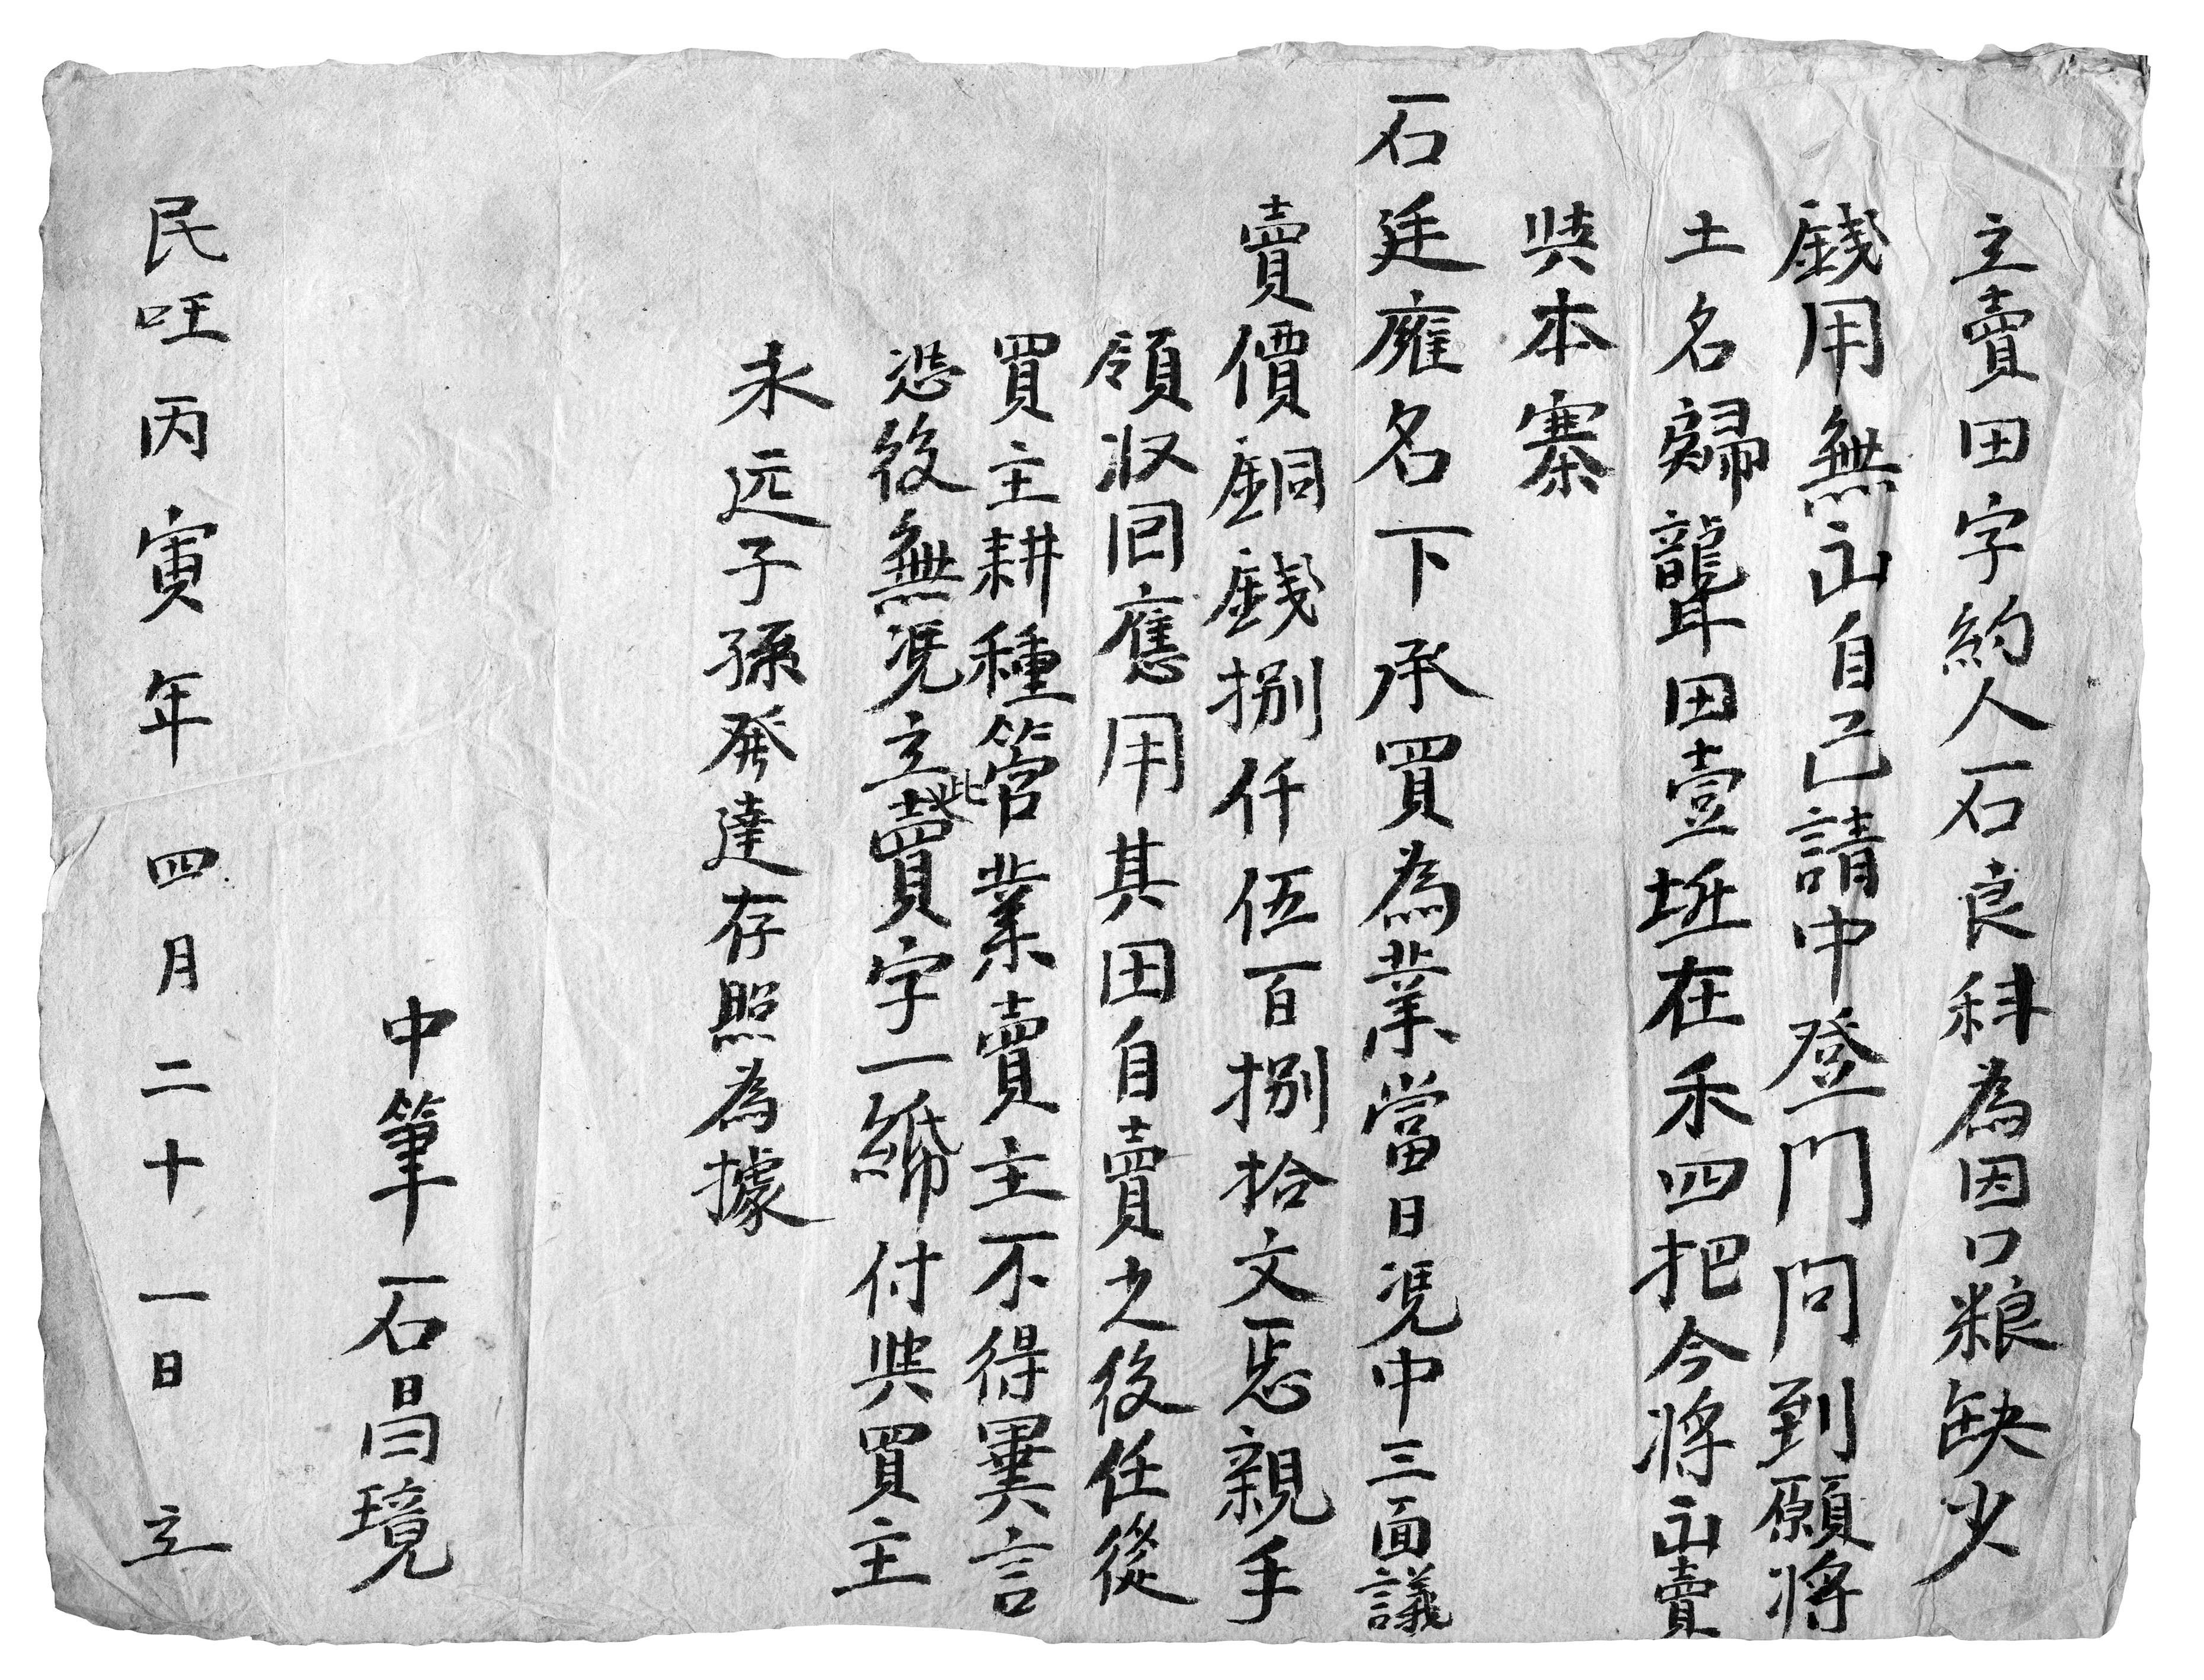 立賣田字約人石良科為因口粮缺少
錢用無出自己請中登門問到願將
土名歸聾田壹坵在禾四把今將出賣
與本寨
石廷雍名下承買為業當日凴中三面議
賣價銅錢捌仟伍百捌拾文恁親手
領収回應用其田自賣之後任從
買主耕種管業賣主不得異言
恐後無凴立此賣字一紙付與買主
永远子孫發達存照為據
中筆石昌璄
民旺丙寅年四月二十一日立